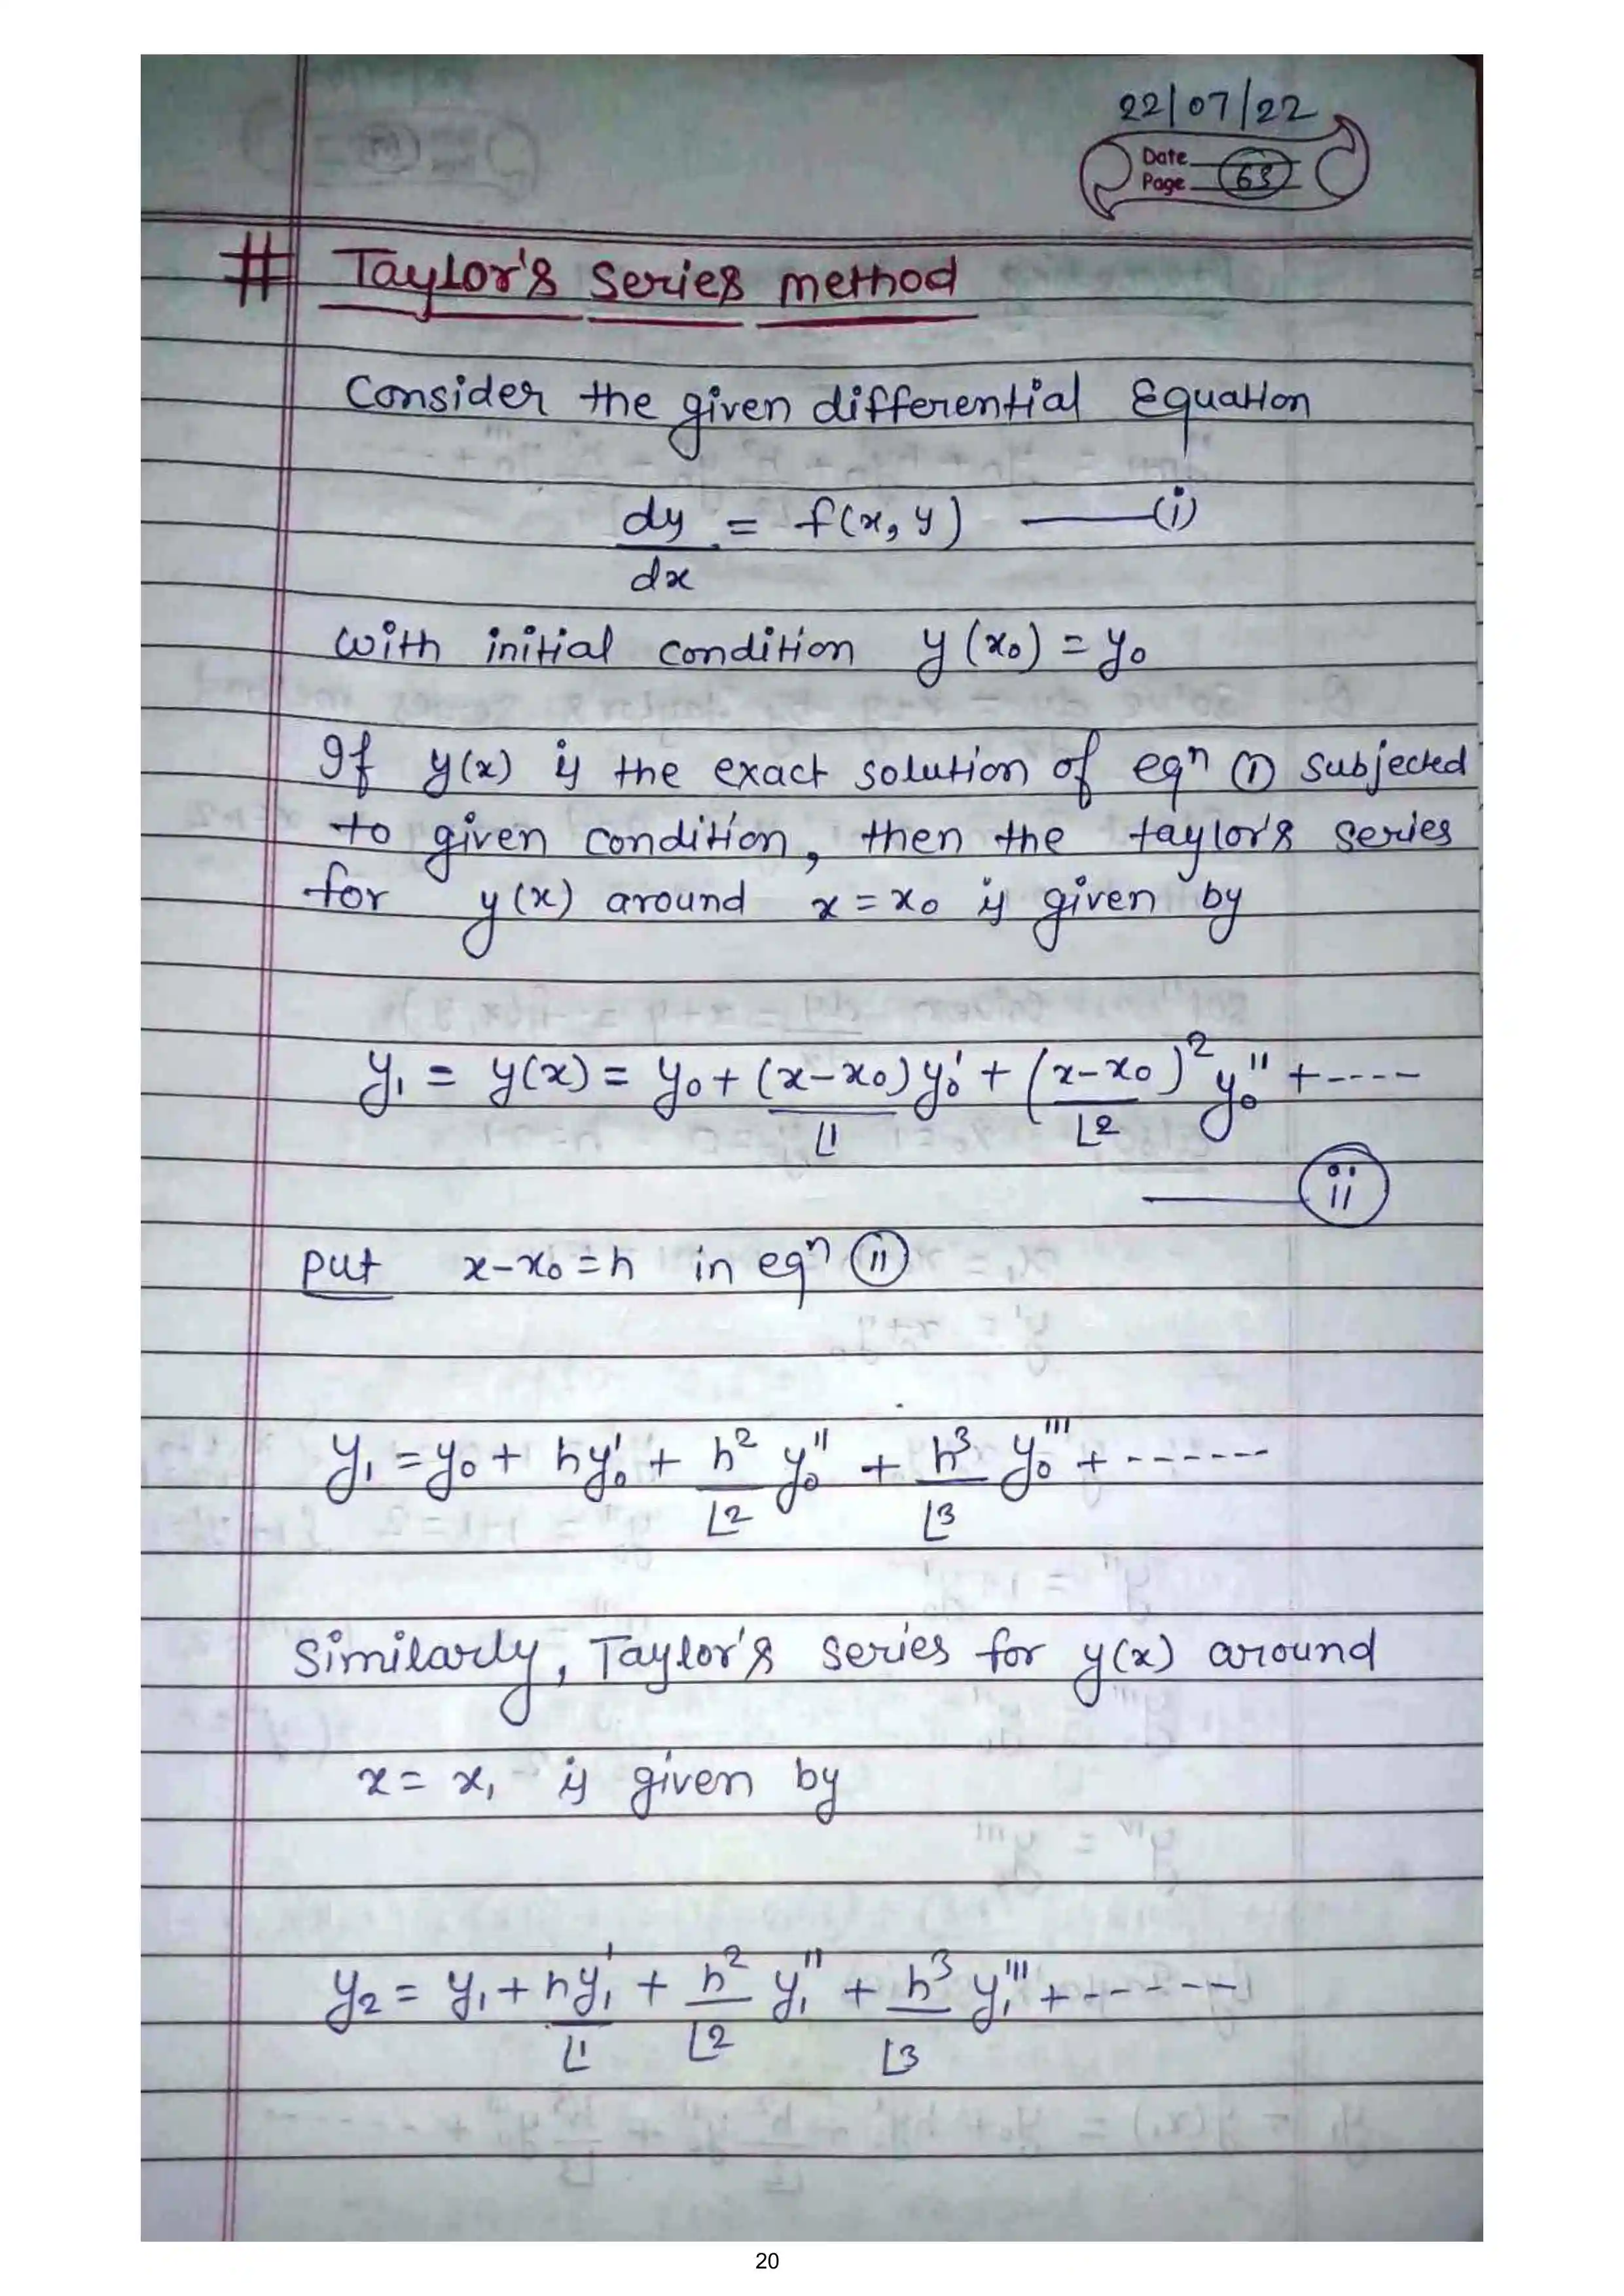 22/07/22
Date
Page 63
# Taylor's series method
Consider the given differential Equation
dy/dx = f(x, y) ——(i)
with initial condition y(x₀) = y₀
If y(x) is the exact solution of eqⁿ (1) subjected
to given condition, then the taylor's series
for y(x) around x = x₀ is given by
y₁ = y(x) = y₀ + (x-x₀)/⌊1 y₀' + (x-x₀)²/⌊2 y₀'' + ----
——(ii)
put x-x₀ = h in eqⁿ (ii)
y₁ = y₀ + hy₀' + h²/⌊2 y₀'' + h³/⌊3 y₀''' + ------
Similarly, Taylor's series for y(x) around
x = x₁ is given by
y₂ = y₁ + hy₁'/⌊1 + h²/⌊2 y₁'' + h³/⌊3 y₁''' + ------
20